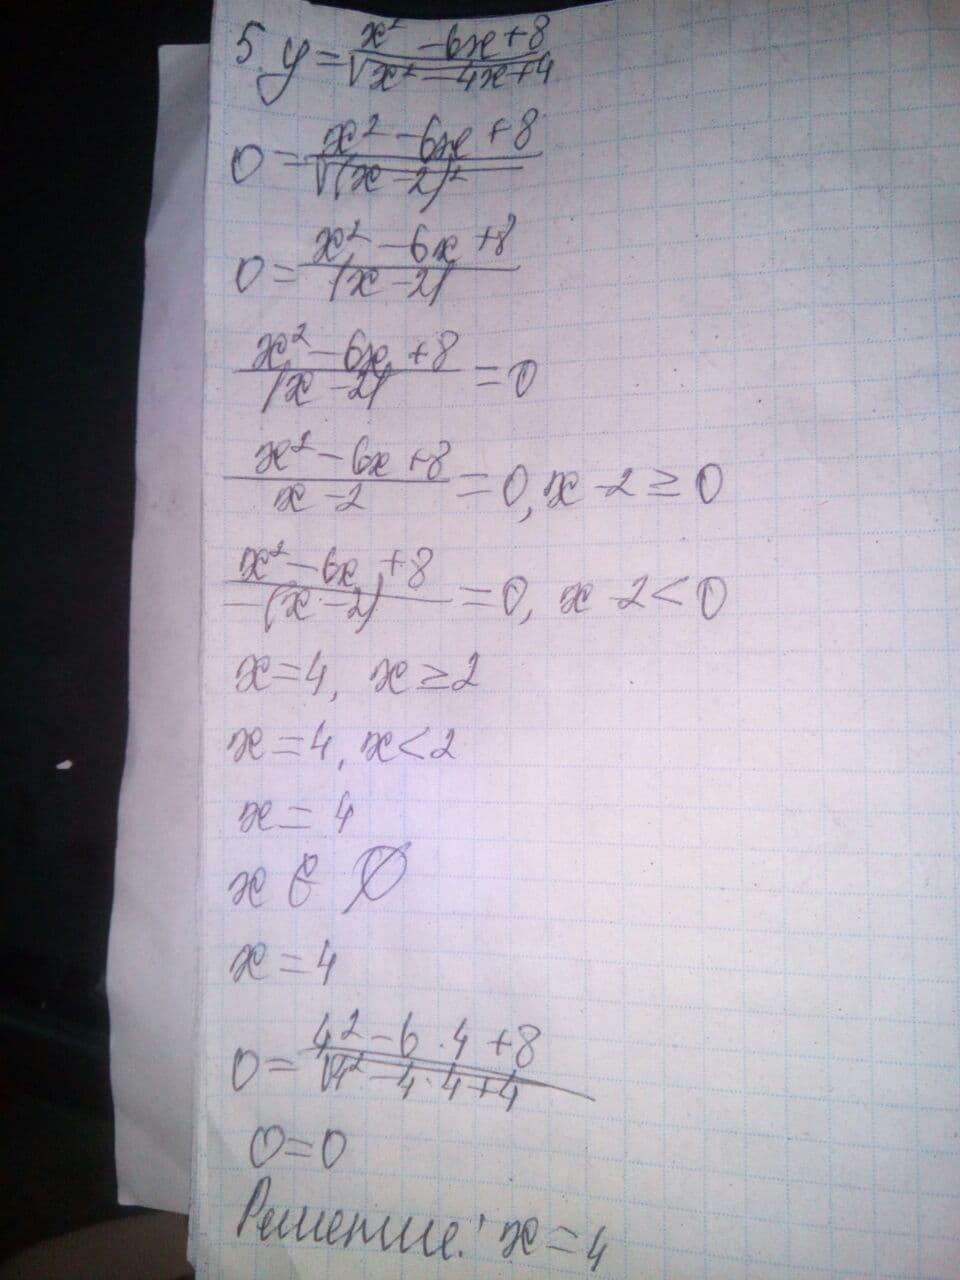 5. y = (x² - 6x + 8)/√(x² - 4x + 4)
0 = (x² - 6x + 8)/√((x - 2)²)
0 = (x² - 6x + 8)/|x - 2|
(x² - 6x + 8)/|x - 2| = 0
(x² - 6x + 8)/(x - 2) = 0, x - 2 ≥ 0
(x² - 6x + 8)/(-(x - 2)) = 0, x - 2 < 0
x = 4, x ≥ 2
x = 4, x < 2
x = 4
x ∈ ∅
x = 4
0 = (4² - 6 · 4 + 8)/√(4² - 4 · 4 + 4)
0 = 0
Решение: x = 4